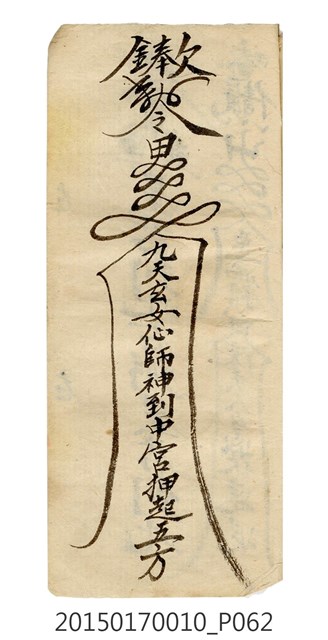 奉
勅令
九天玄女仙師神到中宮押起五方
20150170010_P062